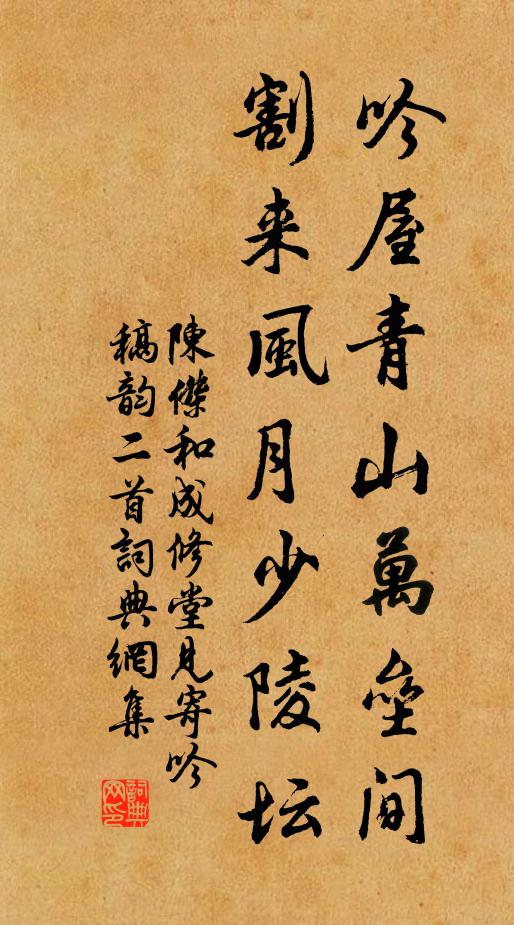 吟屋青山萬壘間
割来風月少陵坛
陳傑和成修堂見寄吟
稿韵二首詞典網集
詞典网印